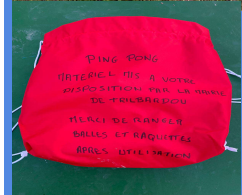 PING PONG
MATERIEL MIS A VOTRE
DISPOSITION PAR LA MAIRIE
DE TRILBARDOU
MERCI DE RANGER
BALLES ET RAQUETTES
APRES UTILISATION